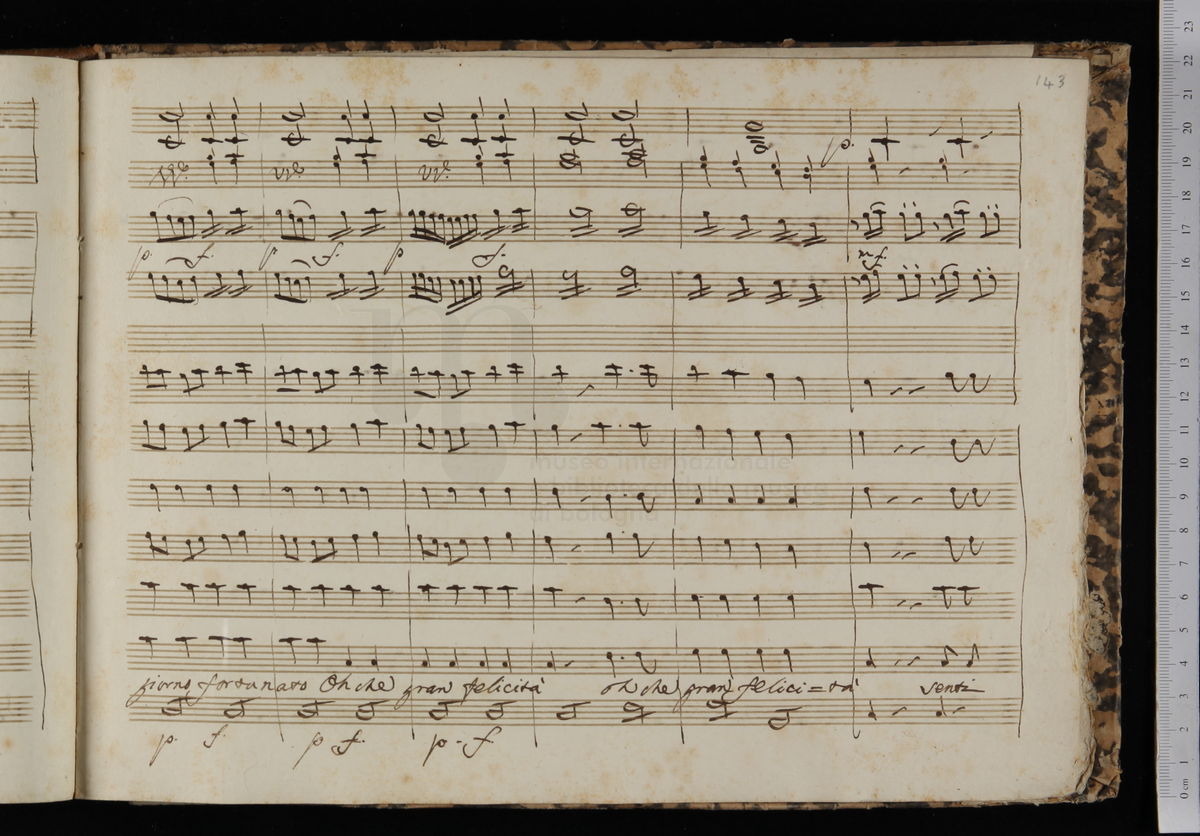 143
p.
p. f. p f. p f. mf.
giorno fortunato Oh che gran felicità oh che gran felici=tà senti
p. f. p f. p. f.
museo internazionale
di bologna
23
22
21
20
19
18
17
16
15
14
13
12
11
10
9
8
7
6
5
4
3
2
1
0 cm